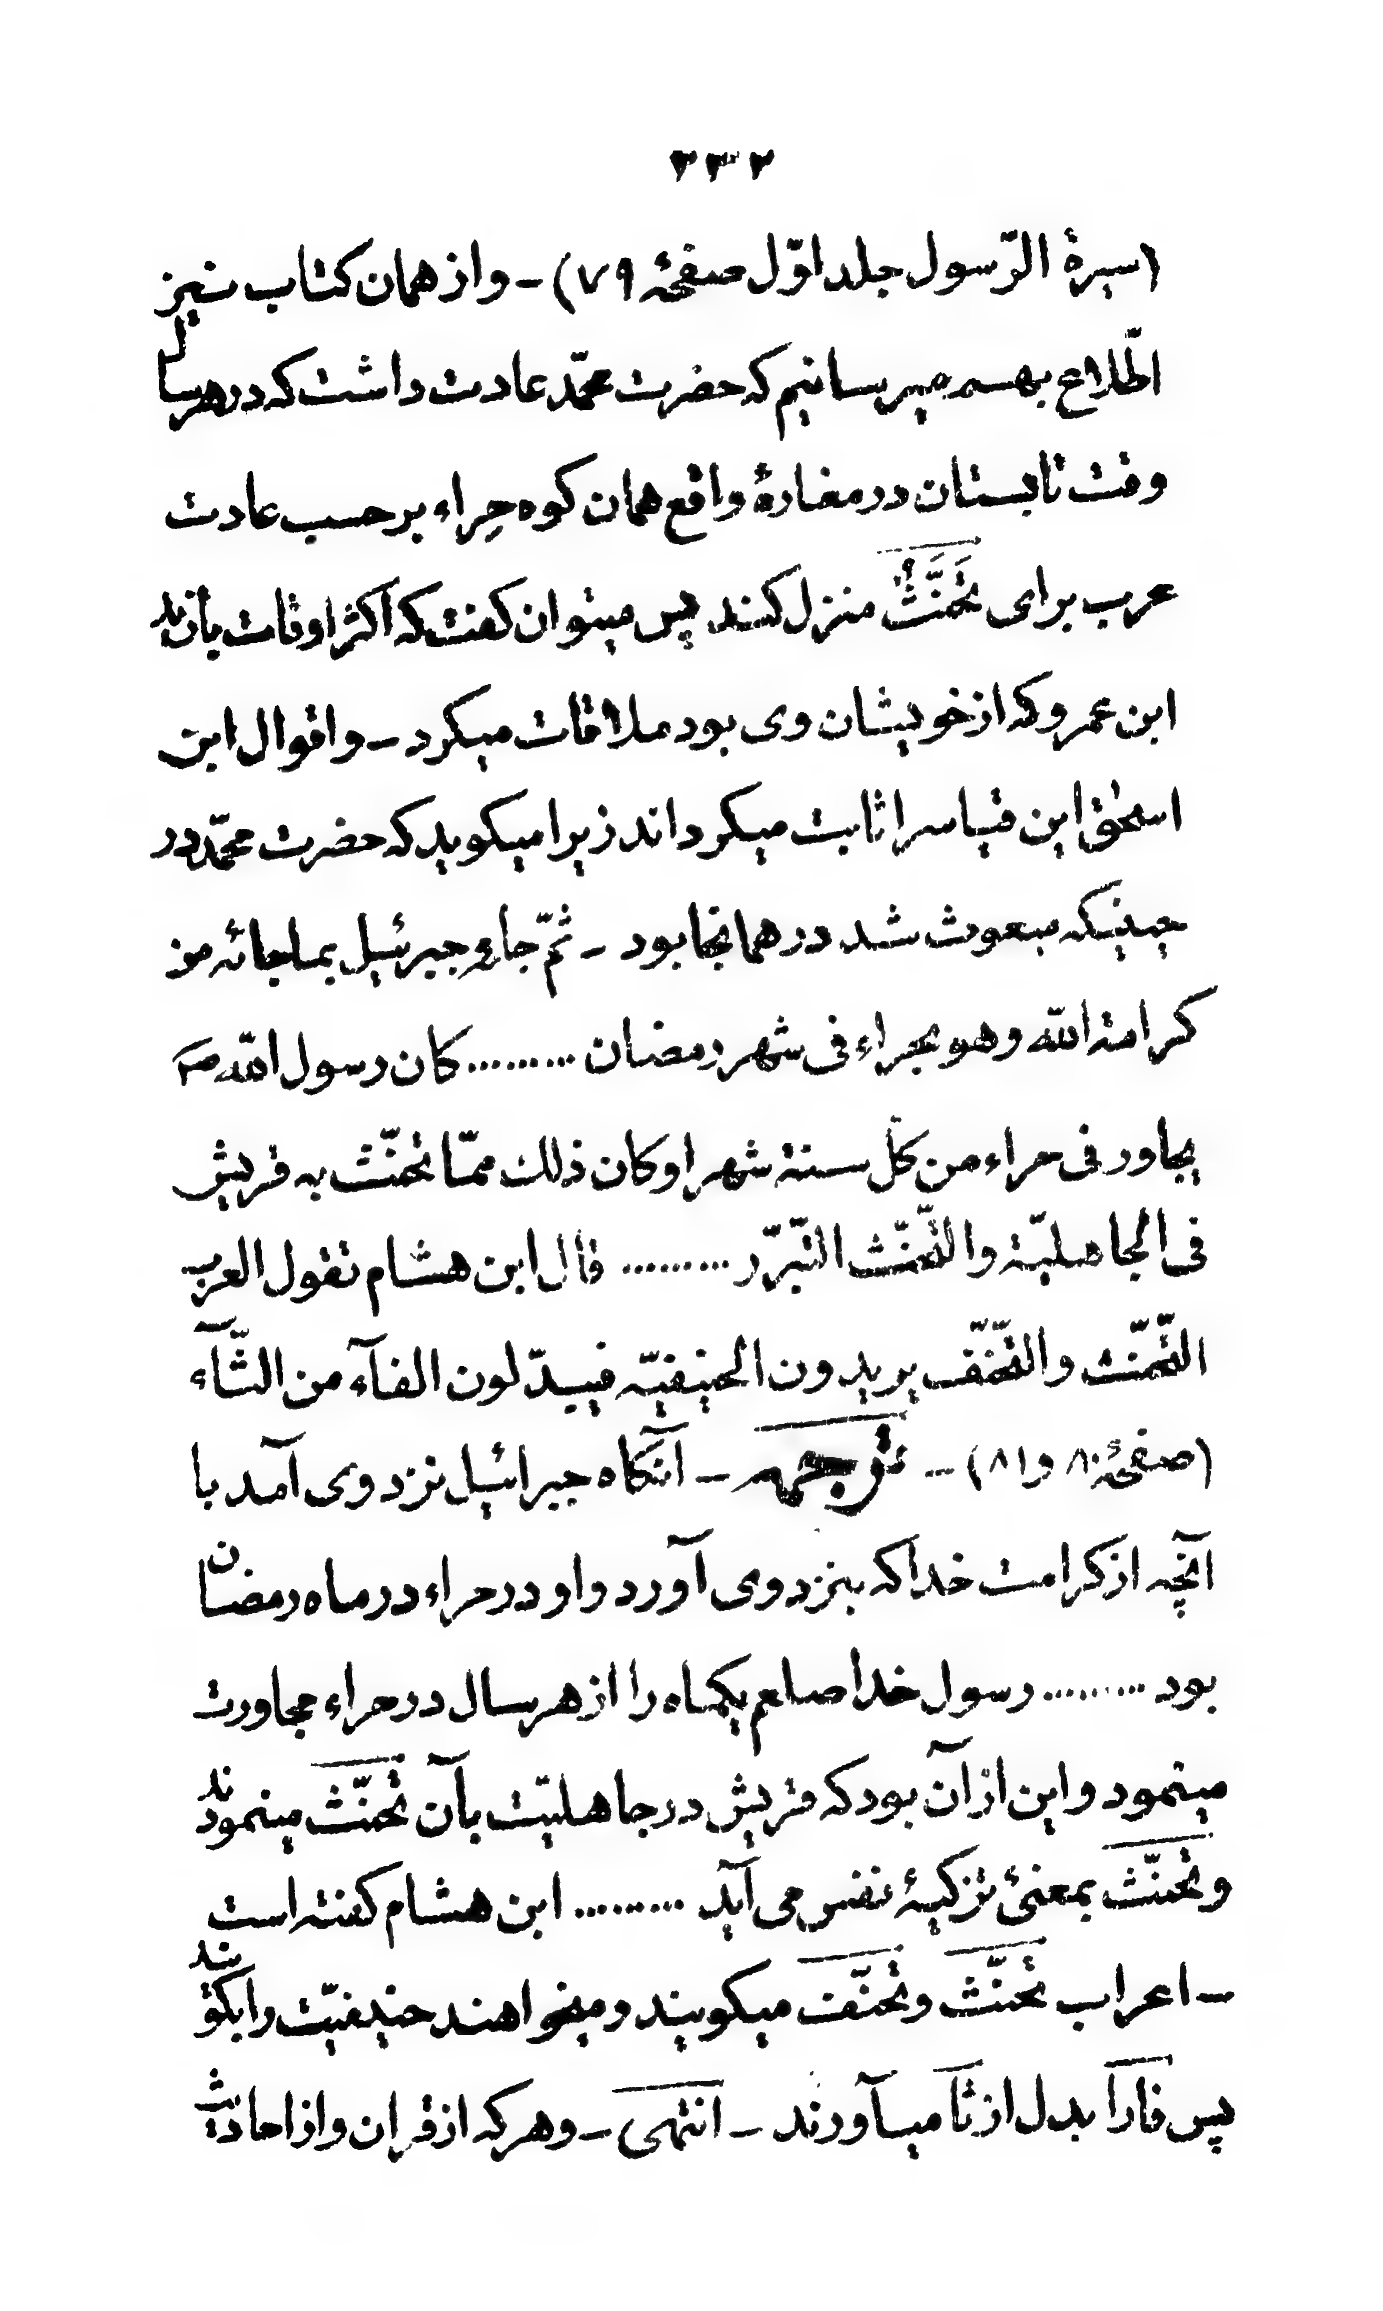 ۲۳۳
(سیرة الرّسول جلد اوّل صفحهٔ ۷۹) – و از همان کتاب نیز
اطّلاع بهم میرسانیم که حضرت محمّد عادت داشت که در هر سال
وقت تابستان در مغارهٔ واقع همان کوه حِراء بر حسب عادت
عرب برای تَحَنُّث منزل کند پس میتوان کفت که اکثر اوقات بآن
ابن عمرو که از خویشان وی بود ملاقات میکرد – و اقوال ابن
اسحٰق این قیاس را ثابت میکرداند زیرا میکوید که حضرت محمّد در
حینیکه مبعوث شد در همانجا بود – ثمّ جاءه جبرئیل بما جائه من
کرامة الله و هو بحراء فی شهر رمضان ......... کان رسول الله صم
یجاور فی حراء من کلّ سنة شهرا و کان ذلك ممّا تحنّث به قریش
فی الجاهلیّة و التّحنّث التّبرّر ......... قال ابن هشام تقول العرب
التّحنّث و التّحنّف یریدون الحنیفیّه فیبدّلون الفآء من الثّآء
(صفحهٔ ۸۰ و ۸۱) – ترجمه – آنکاه جبرائیل نزد وی آمد با
آنچه از کرامت خدا که بنزد وی آورد و او در حراء در ماه رمضان
بود ......... رسول خدا صلعم یکماه را از هر سال در حراء مجاورت
مینمود و این از آن بود که قریش در جاهلیّت بآن تحنّث مینمودند
و تحنّث بمعنیٔ تزکیهٔ نفس می آید ......... ابن هشام کفته است
– اعراب تحنّث و تحنّف میکویند و میخواهند حنیفیّت را بکویند
پس فا را بدل از ثا میآورند – انتهی – و هر که از قران و از احادیث